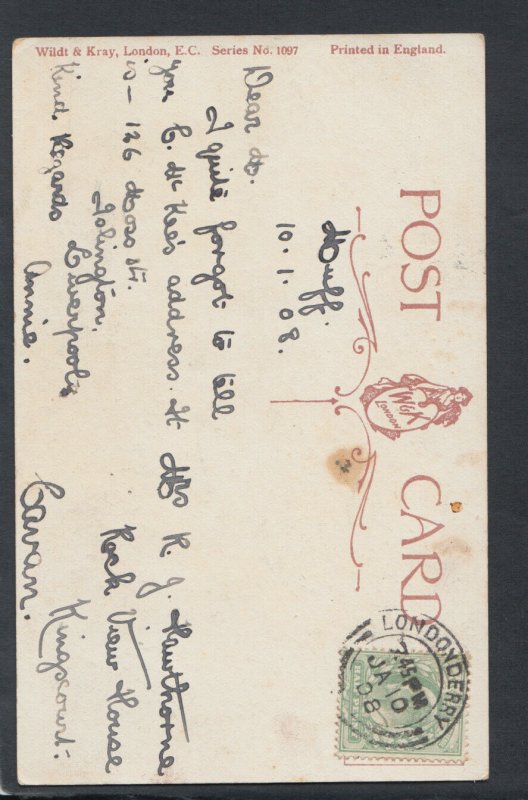 Wildt & Kray, London, E.C. Series No. 1097 Printed in England.
POST CARD
W&K
LONDON
Muff.
10.1.08.
Dear
I quite forgot to tell
you C. McKee's address. It
is — 136 Moss St.
Islington,
Liverpool.
Kind Regards
Annie.
R. J. Hawthorne
Rock View House
Kingscourt.
Cavan.
LONDONDERRY
7.45 PM
JA 10
08
HALFPENNY